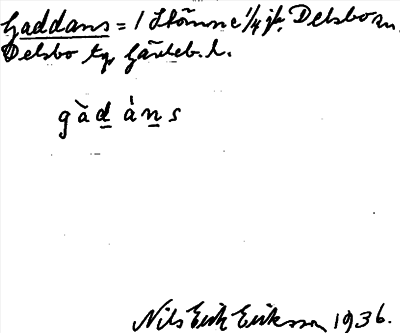 Gaddans = 1 Stömne 1/4 jk. Delsbo sn.
Delsbo tg. Gävleb. l.
gàdàns
Nils Erik Eriksson 1936.